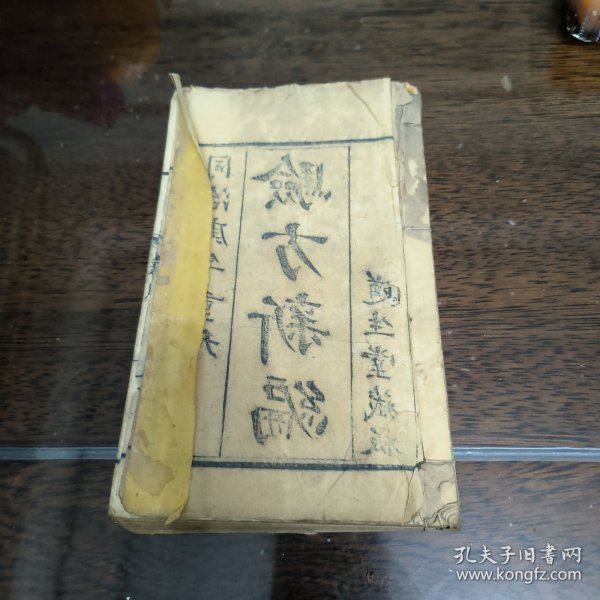 同治庚午重
驗方新編
生堂藏板
孔夫子旧書网
www.kongfz.com